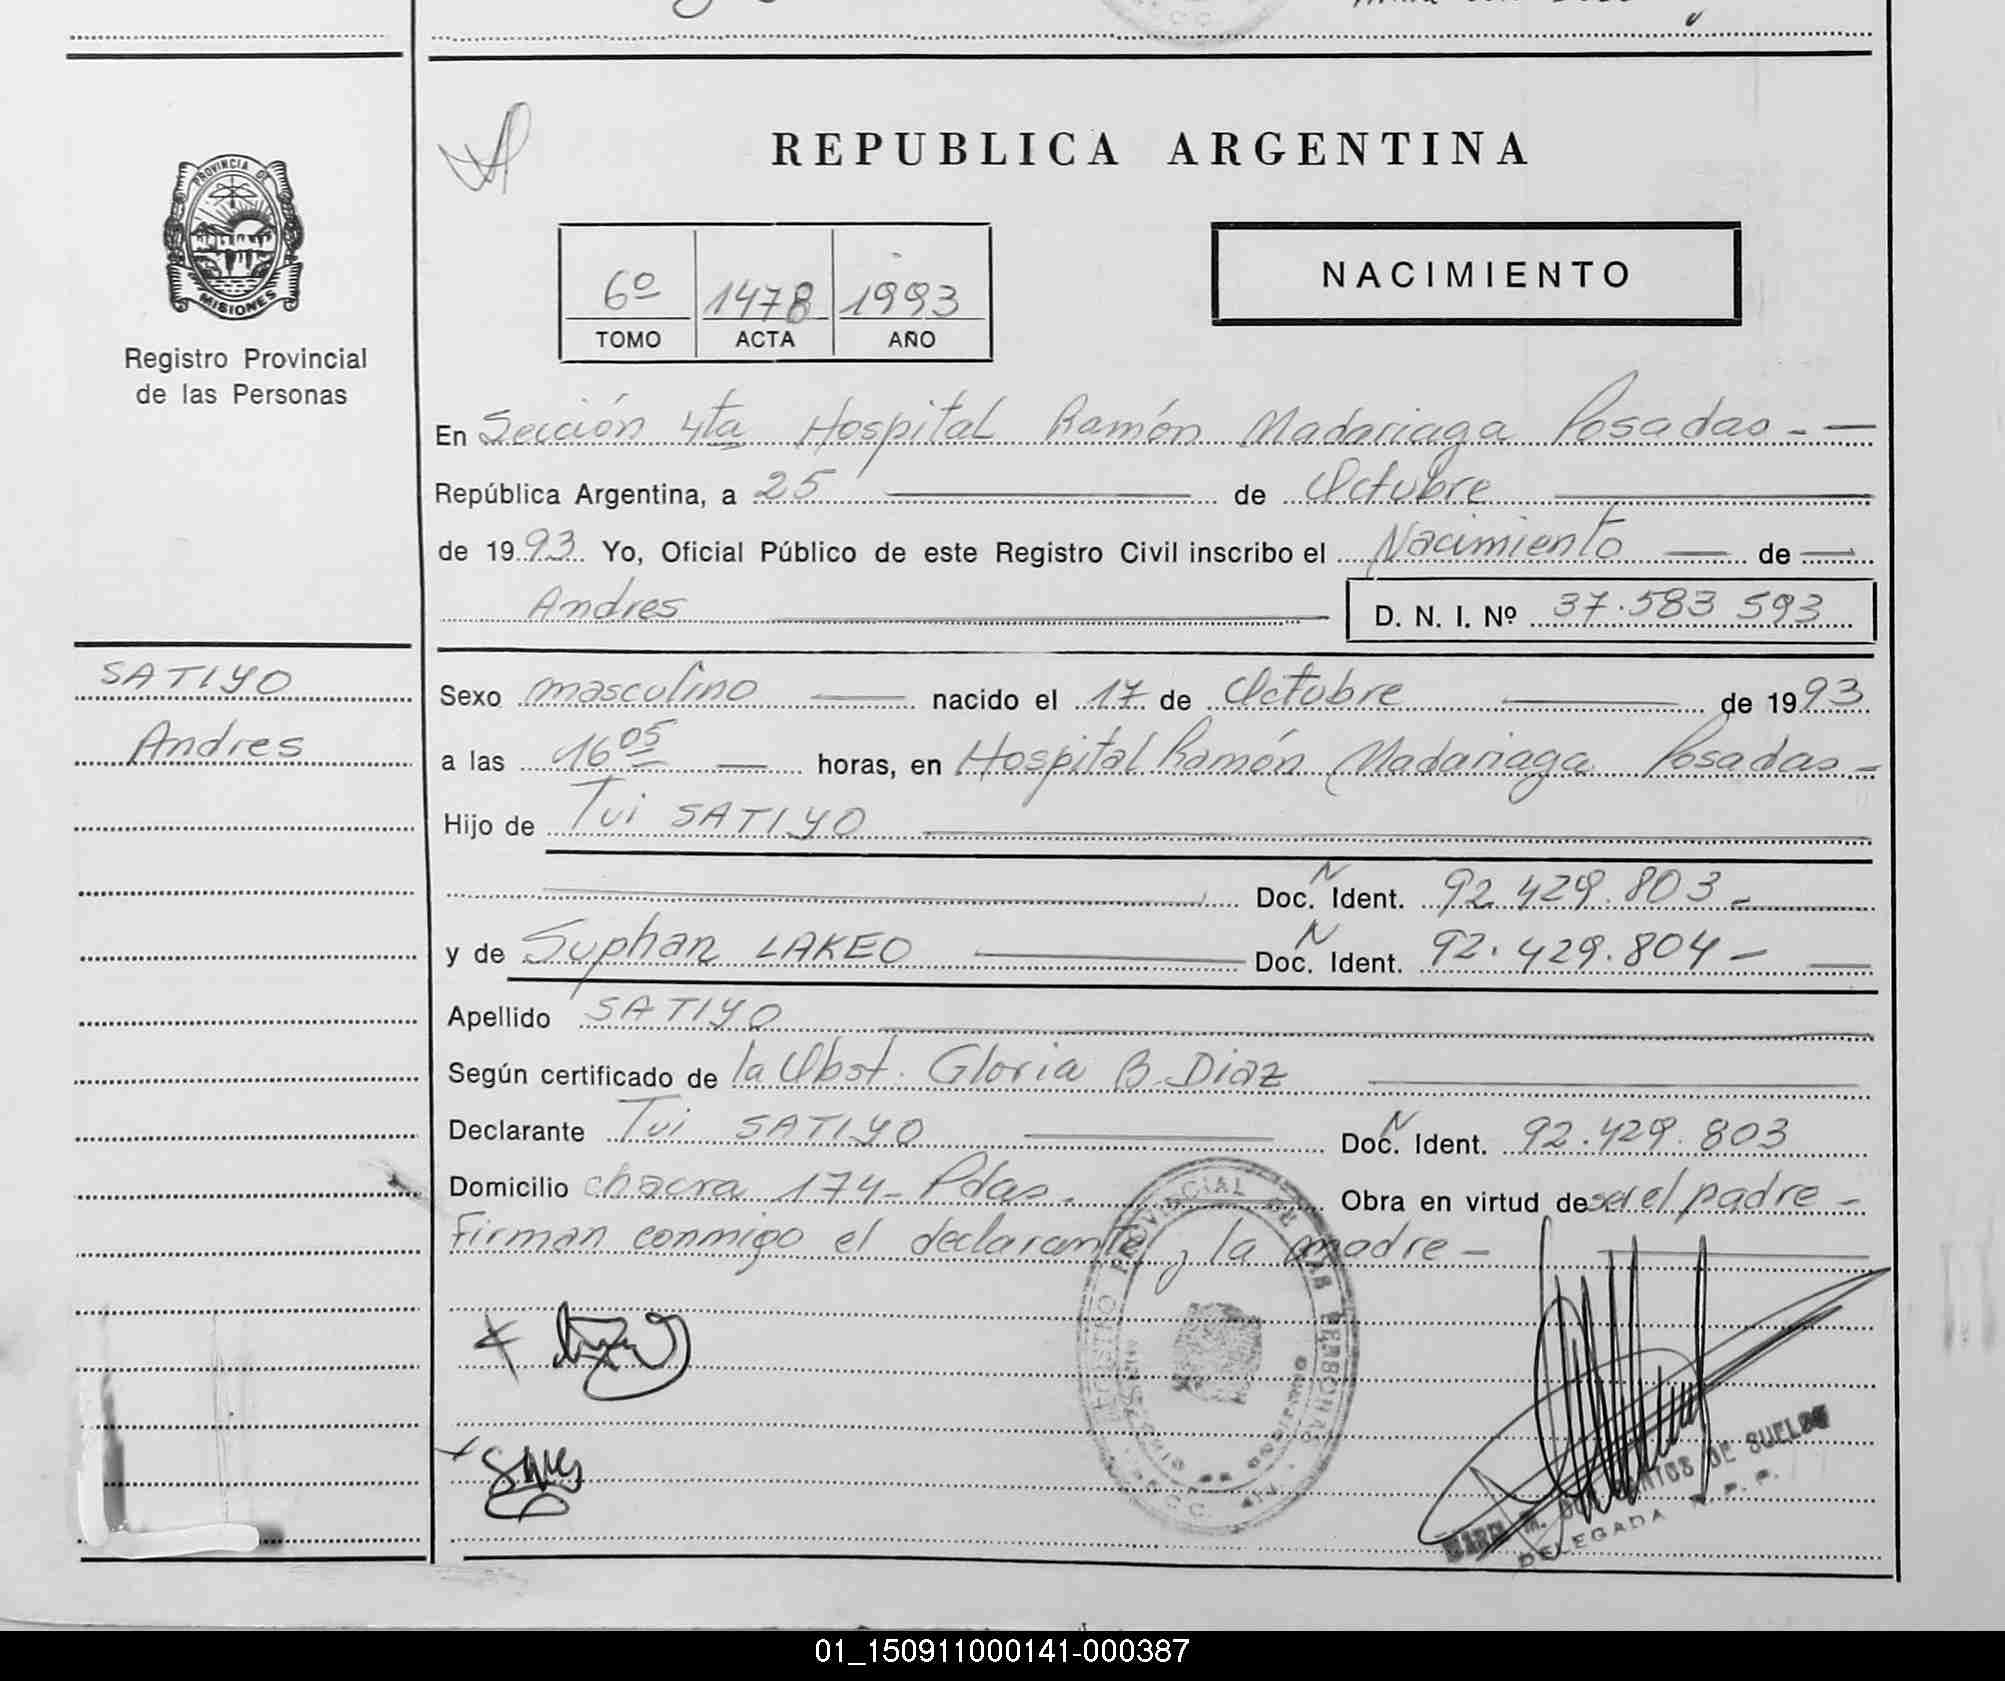 REPUBLICA ARGENTINA
PROVINCIA DE
MISIONES
Registro Provincial
de las Personas
6º 1478 1993
TOMO ACTA AÑO
NACIMIENTO
En Sección 4ta Hospital Ramón Madariaga Posadas - —
República Argentina, a 25 — de Octubre —
de 1993 Yo, Oficial Público de este Registro Civil inscribo el Nacimiento — de —
Andres — D. N. I. Nº 37.583 593
SATIYO
Andres
Sexo masculino — nacido el 17 de Octubre — de 1993
a las 16 05 — horas, en Hospital Ramón Madariaga Posadas -
Hijo de Tui SATIYO —
— Doc. N Ident. 92.429.803 -
y de Suphan LAKEO — Doc. N Ident. 92.429.804 - —
Apellido SATIYO —
Según certificado de la Obst. Gloria B. Diaz —
Declarante Tui SATIYO — Doc. N Ident. 92.429.803
Domicilio chacra 174 - Pdas. Obra en virtud de ser el padre -
Firman conmigo el declarante y la madre - —
REGISTRO PROVINCIAL DE LAS PERSONAS
MINISTERIO DE GOBIERNO
DOS SANTOS DE SUELDO
DELEGADA R. P. P.
01_150911000141-000387